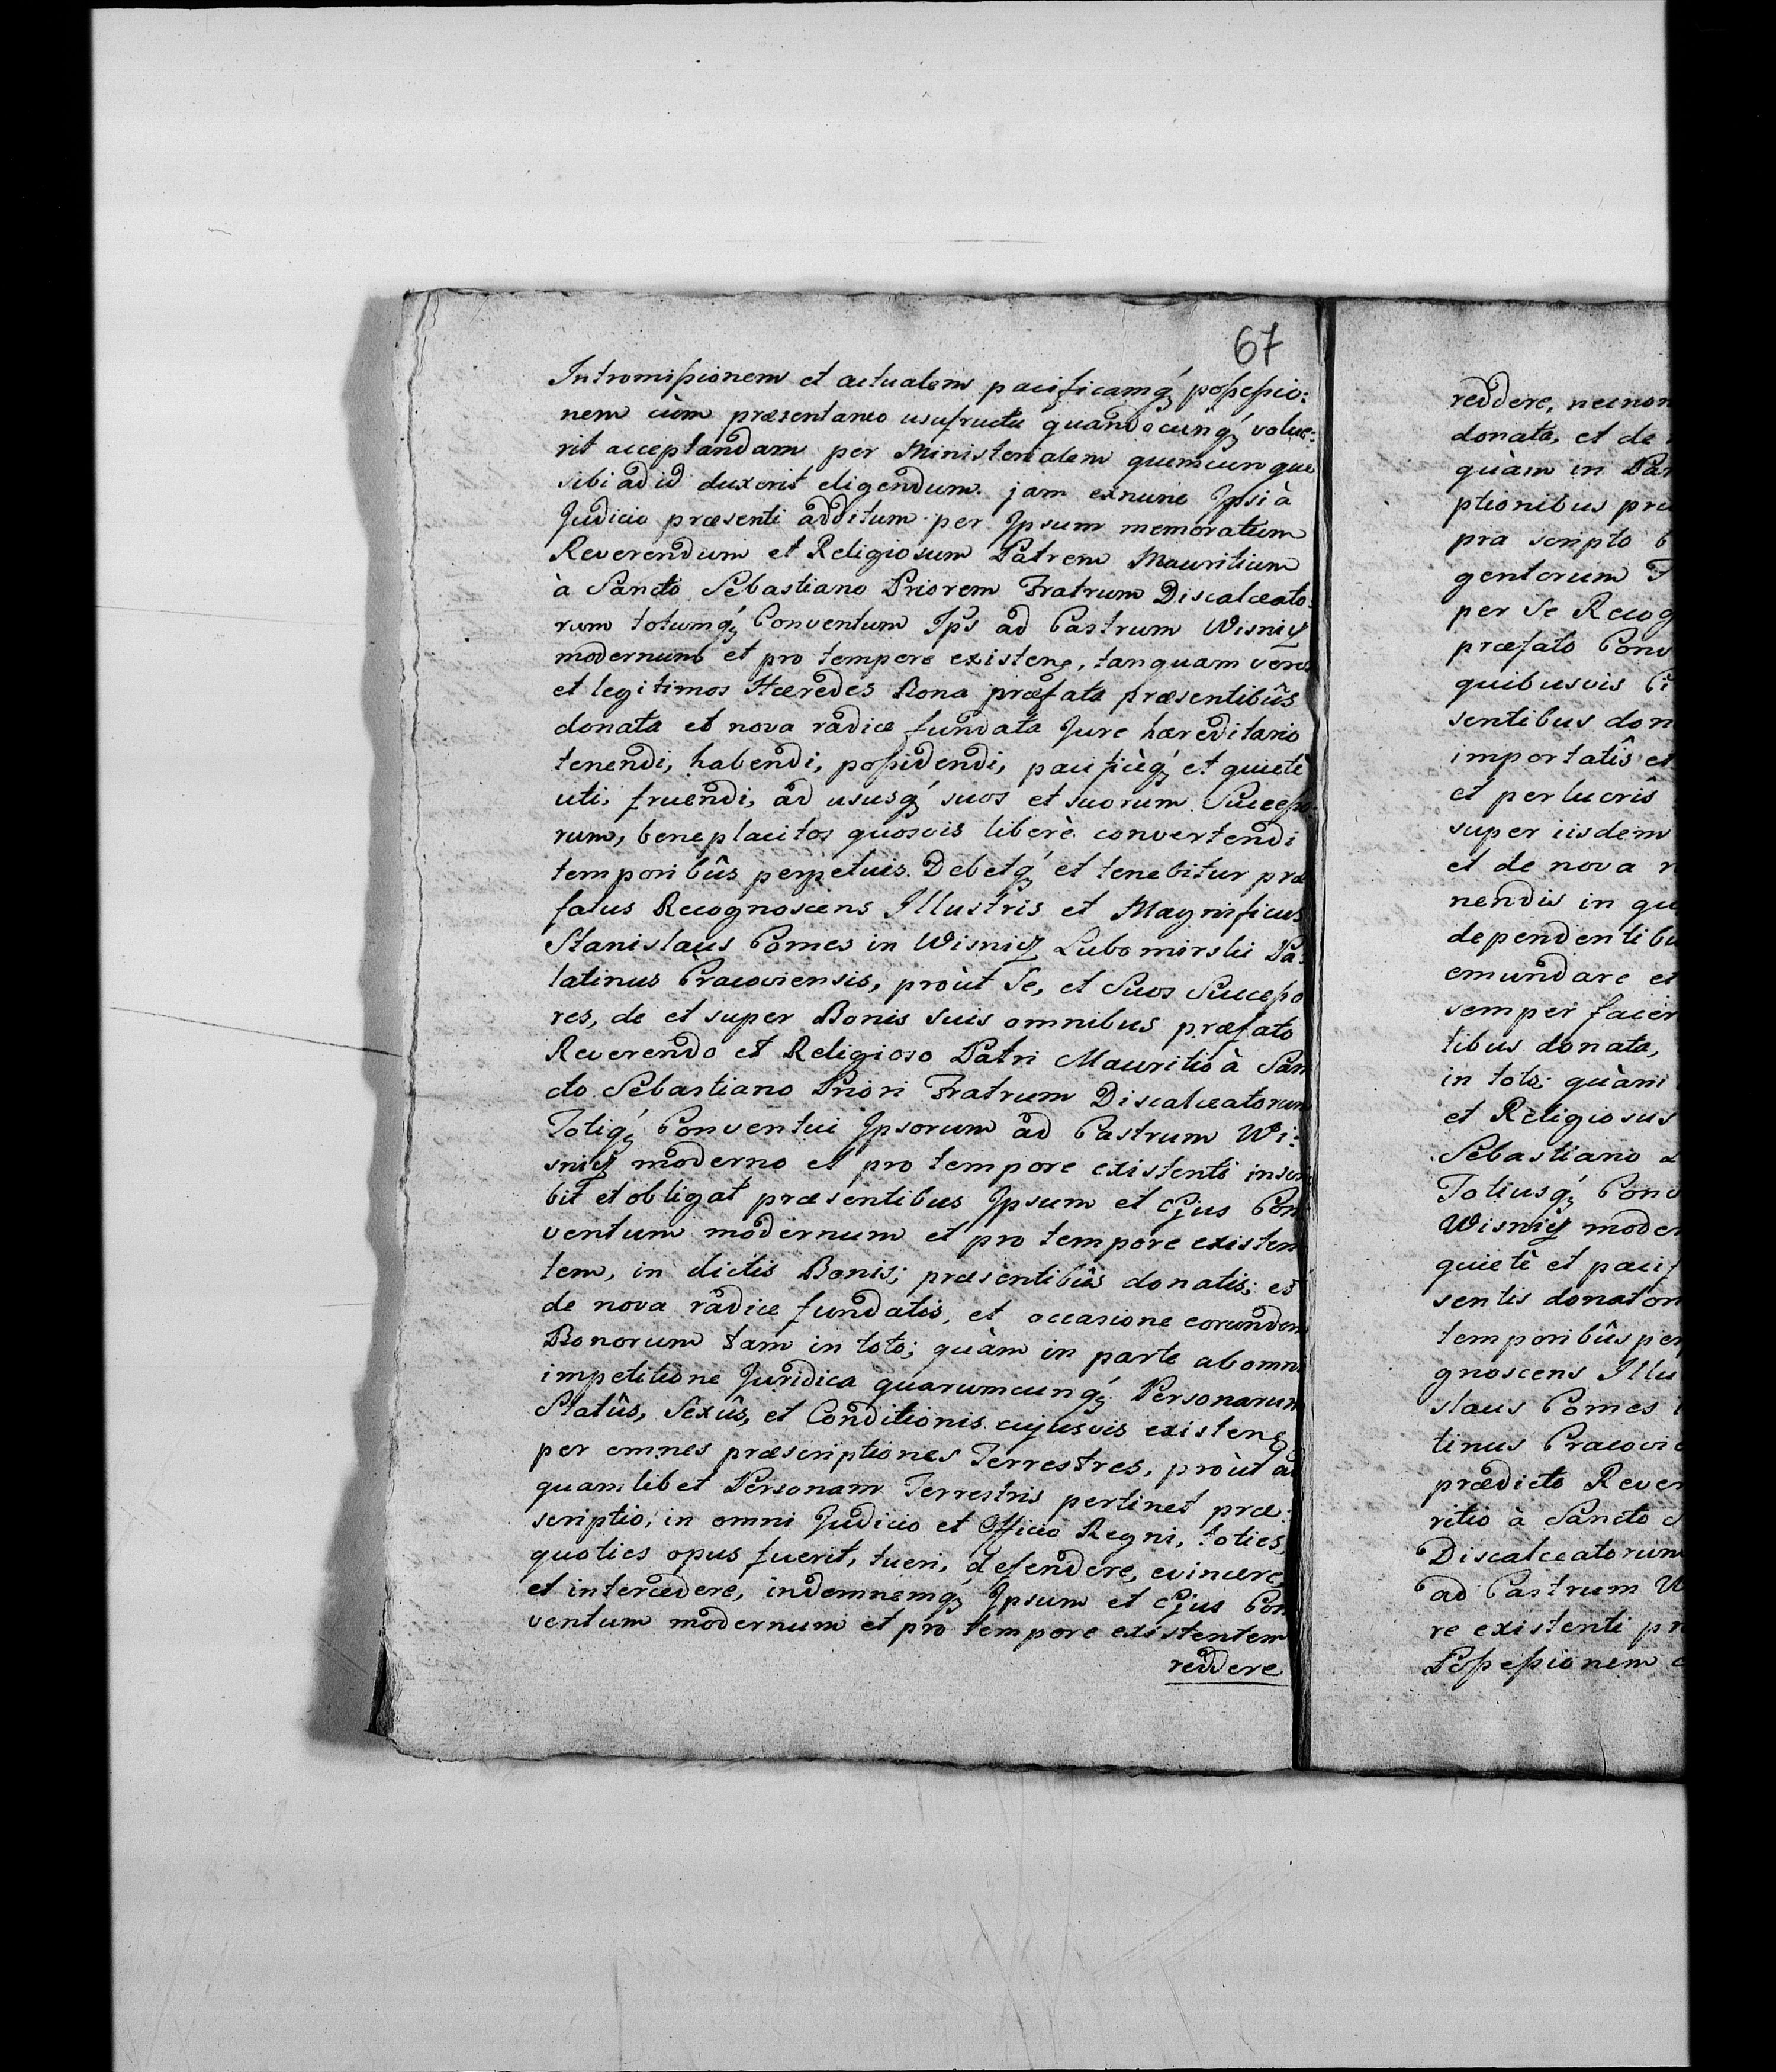 67
Intromissionem et actualem pacificamq́ꝫ possessio:
nem cùm praesentaneo usufructu quandocunq́ꝫ volue:
rit acceptandam per Ministerialem quemcunque
sibi ad id duxerit eligendum. jam exnunc Ipsi à
Judicio praesenti additum per Ipsum memoratum
Reverendum et Religiosum Patrem Mauritium
à Sancto Sebastiano Priorem Fratrum Discalceato:
rum totumq́ꝫ Conventum Ips ad Castrum Wisnicz
modernum et pro tempore existenẹ, tanquam veros
et legitimos Haeredes Bona praefata praesentibûs
donata et nova radice fundata Jure haereditario
tenendi, habendi, possidendi, pacificèq́ꝫ et quietè
uti, fruendi, ad ususq́ꝫ suos et suorum Successo
rum, beneplacitos quosvis liberè convertendi
temporibûs perpetuis. Debetq́ꝫ et tenebitur prae
fatus Recognoscens Illustris et Magnificus
Stanislaus Comes in Wisnicz Lubomirski Pa:
latinus Cracoviensis, proùt Se, et Suos Successo
res, de et super Bonis suis omnibus praefato
Reverendo et Religioso Patri Mauritio à San
cto Sebastiano Priori Fratrum Discalceatorum
Totiq́ꝫ Conventui Ipsorum ad Castrum Wi:
snicz moderno et pro tempore existenti inscri
bit et obligat praesentibus Ipsum et Ejus Con
ventum modernum et pro tempore existen
tem, in dictis Bonis; praesentibûs donatis; et
de nova radice fundatis, et occasione eorundem
Bonorum tam in toto; quàm in parte ab omni
impetitione Juridica quarumcunq́ꝫ Personarum
Statûs, Sexûs, et Conditionis cujusvis existenẹ
per omnes praescriptiones Terrestres, proùt ad
quamlibet Personam Terrestris pertinet prae:
scriptio, in omni Judicio et Officio Regni, toties
quoties opus fuerit, tueri, defendere, evincere,
et intercedere, indemnemq́ꝫ Ipsum et Ejus Con
ventum modernum et pro tempore existentem
reddere
reddere, necnon
donata, et de
quàm in Par
ptionibus pra
pra scripto b
gentorum F
per Se Recog
praefato Conv
quibusvis
sentibus don
importatîs et
et per lucris
super iisdem
et de nova r
nendis in qu
dependentibu
emundare et
semper facer
tibus donata,
in toto; quàm
et Religiosus
Sebastiano
Totiusq́ꝫ Conv
Wisnicz moder
quietè et pacif
sentis donator
temporibûs per
gnoscens Illu
slaus Comes i
tinus Cracovie
praedicto Rever
ritio à Sancto S
Discalceatorum
ad Castrum W
re existenti pr
Possessionem